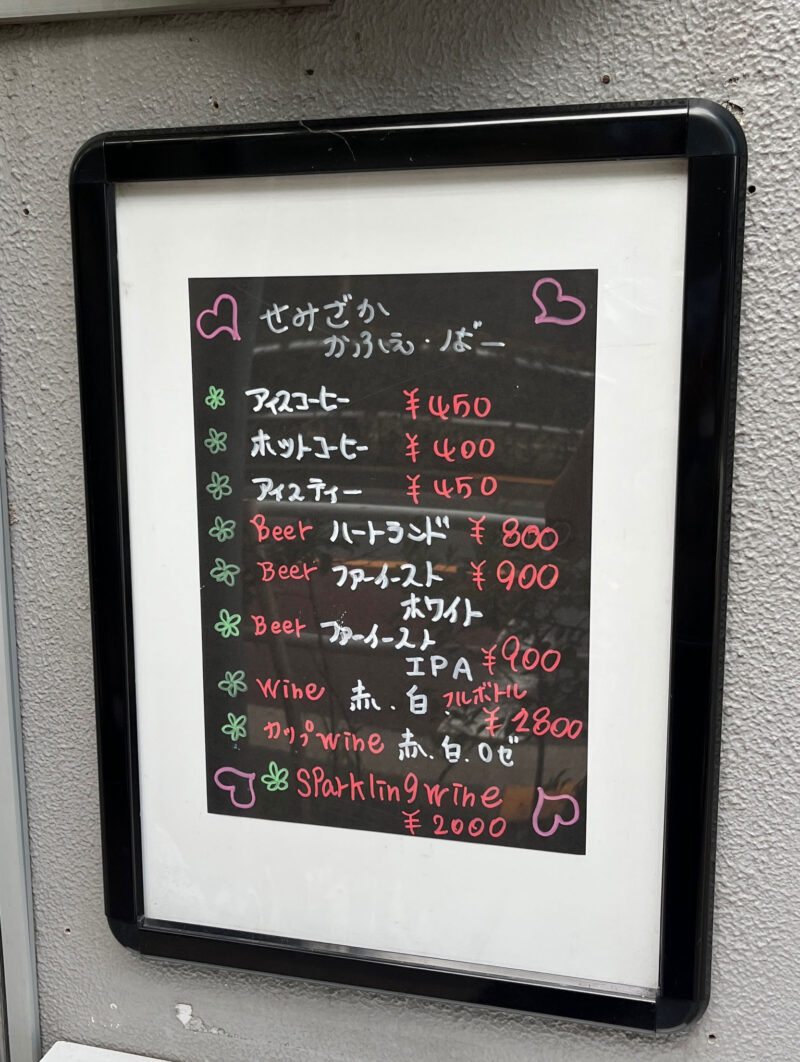 せみざか
かふぇ・ばー
アイスコーヒー ¥450
ホットコーヒー ¥400
アイスティー ¥450
Beer ハートランド ¥800
Beer ファーイースト ¥900
ホワイト
Beer ファーイースト
IPA ¥900
Wine 赤.白 フルボトル
¥2800
カップwine 赤.白.ロゼ
SParklingwine
¥2000